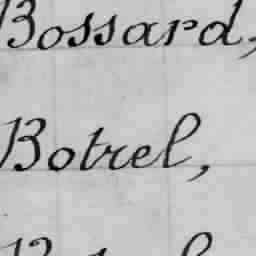 Bossard,
Botrel,